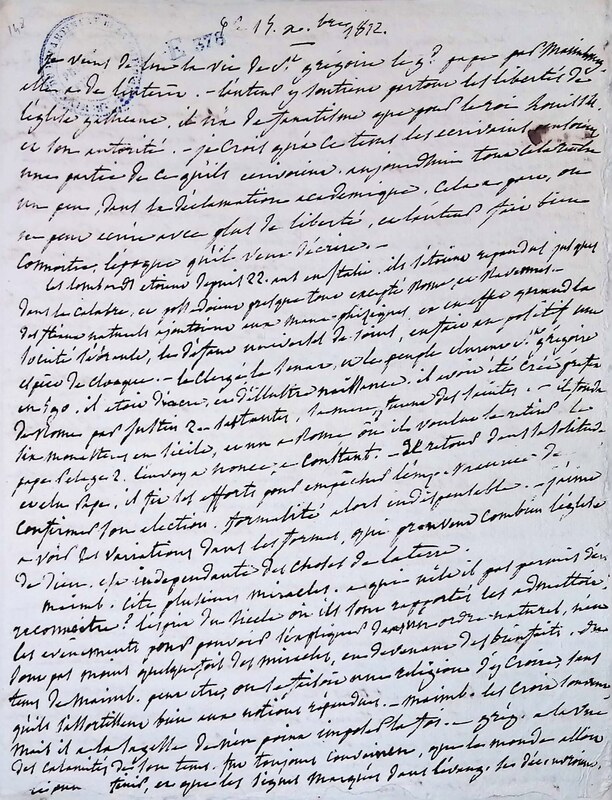 148
E 378
Ce 14 x.bre 1812.
je viens de lire la vie de St. grégoire le gd. pape par Maimbourg
elle a de l'intérêt. - l'auteur y soutient partout les libertés de
l'église gallicane, il n'a de fanatisme que pour le roi Louis 14
et son autorité. - je crois qu'en ce tems les ecrivains
une partie de ce qu'ils ecrivoient. aujourd'hui tout cela
un peu, dans la déclamation academique. cela a paru, on
ne peut ecrire avec plus de liberté, et l'auteur fait bien
connoitre, l'epoque qu'il veut décrire. -
les lombards etoient depuis 22. ans en Italie, ils s'etoient repandus jusques
dans la calabre, et possedoient presque tout excepté Rome, et Ravennes. -
des fléaux naturels ajoutoient aux maux physiques, et en effet quand la
société s'écroule, le défaut universel de soins, en fait en positif une
espèce de cloaque. - le clergé le senat, et le peuple elurent St. grégoire
en 590. il etoit diacre, et d'illustre naissance. il avoit été créé prefet
de Rome par Justin 2. sa mere, tenus des saintes. - il fonda
six monasteres en sicile, et un a Rome où il voulut se retirer. le
pape Pelage 2. l'envoya nonce, a Constant. - De retour dans sa solitude
et elu Pape, il fit les efforts pour empêcher l'emp. Maurice de
confirmer son election. formalité alors indispensable. - j'aime
a voir les variations dans les formes, qui prouvent combien l'église
de Dieu. est independante des choses de la terre.
maimb. cite plusieurs miracles. - que n'est il pas permis de
reconnoitre? l'esprit du siecle où ils sont rapportés les admettoit
les evenements pour pouvoir s'expliquer dans un ordre naturel, n'en
sont pas moins quelquefois des miracles, en devenant des bienfaits. du
tems de Maimb. peut etre, on se faisoit une religion d'y croire, sans
qu'ils s'assortissent bien aux notions repandues. - Maimb. les croit souvent
mais il a la sagesse de n'en point imposer la foi. - grég. a la vue
des calamités de son tems. fut toujours convaincu, que le monde alloit
finir, et que les signes marqués dans l'evang. se découvroient,